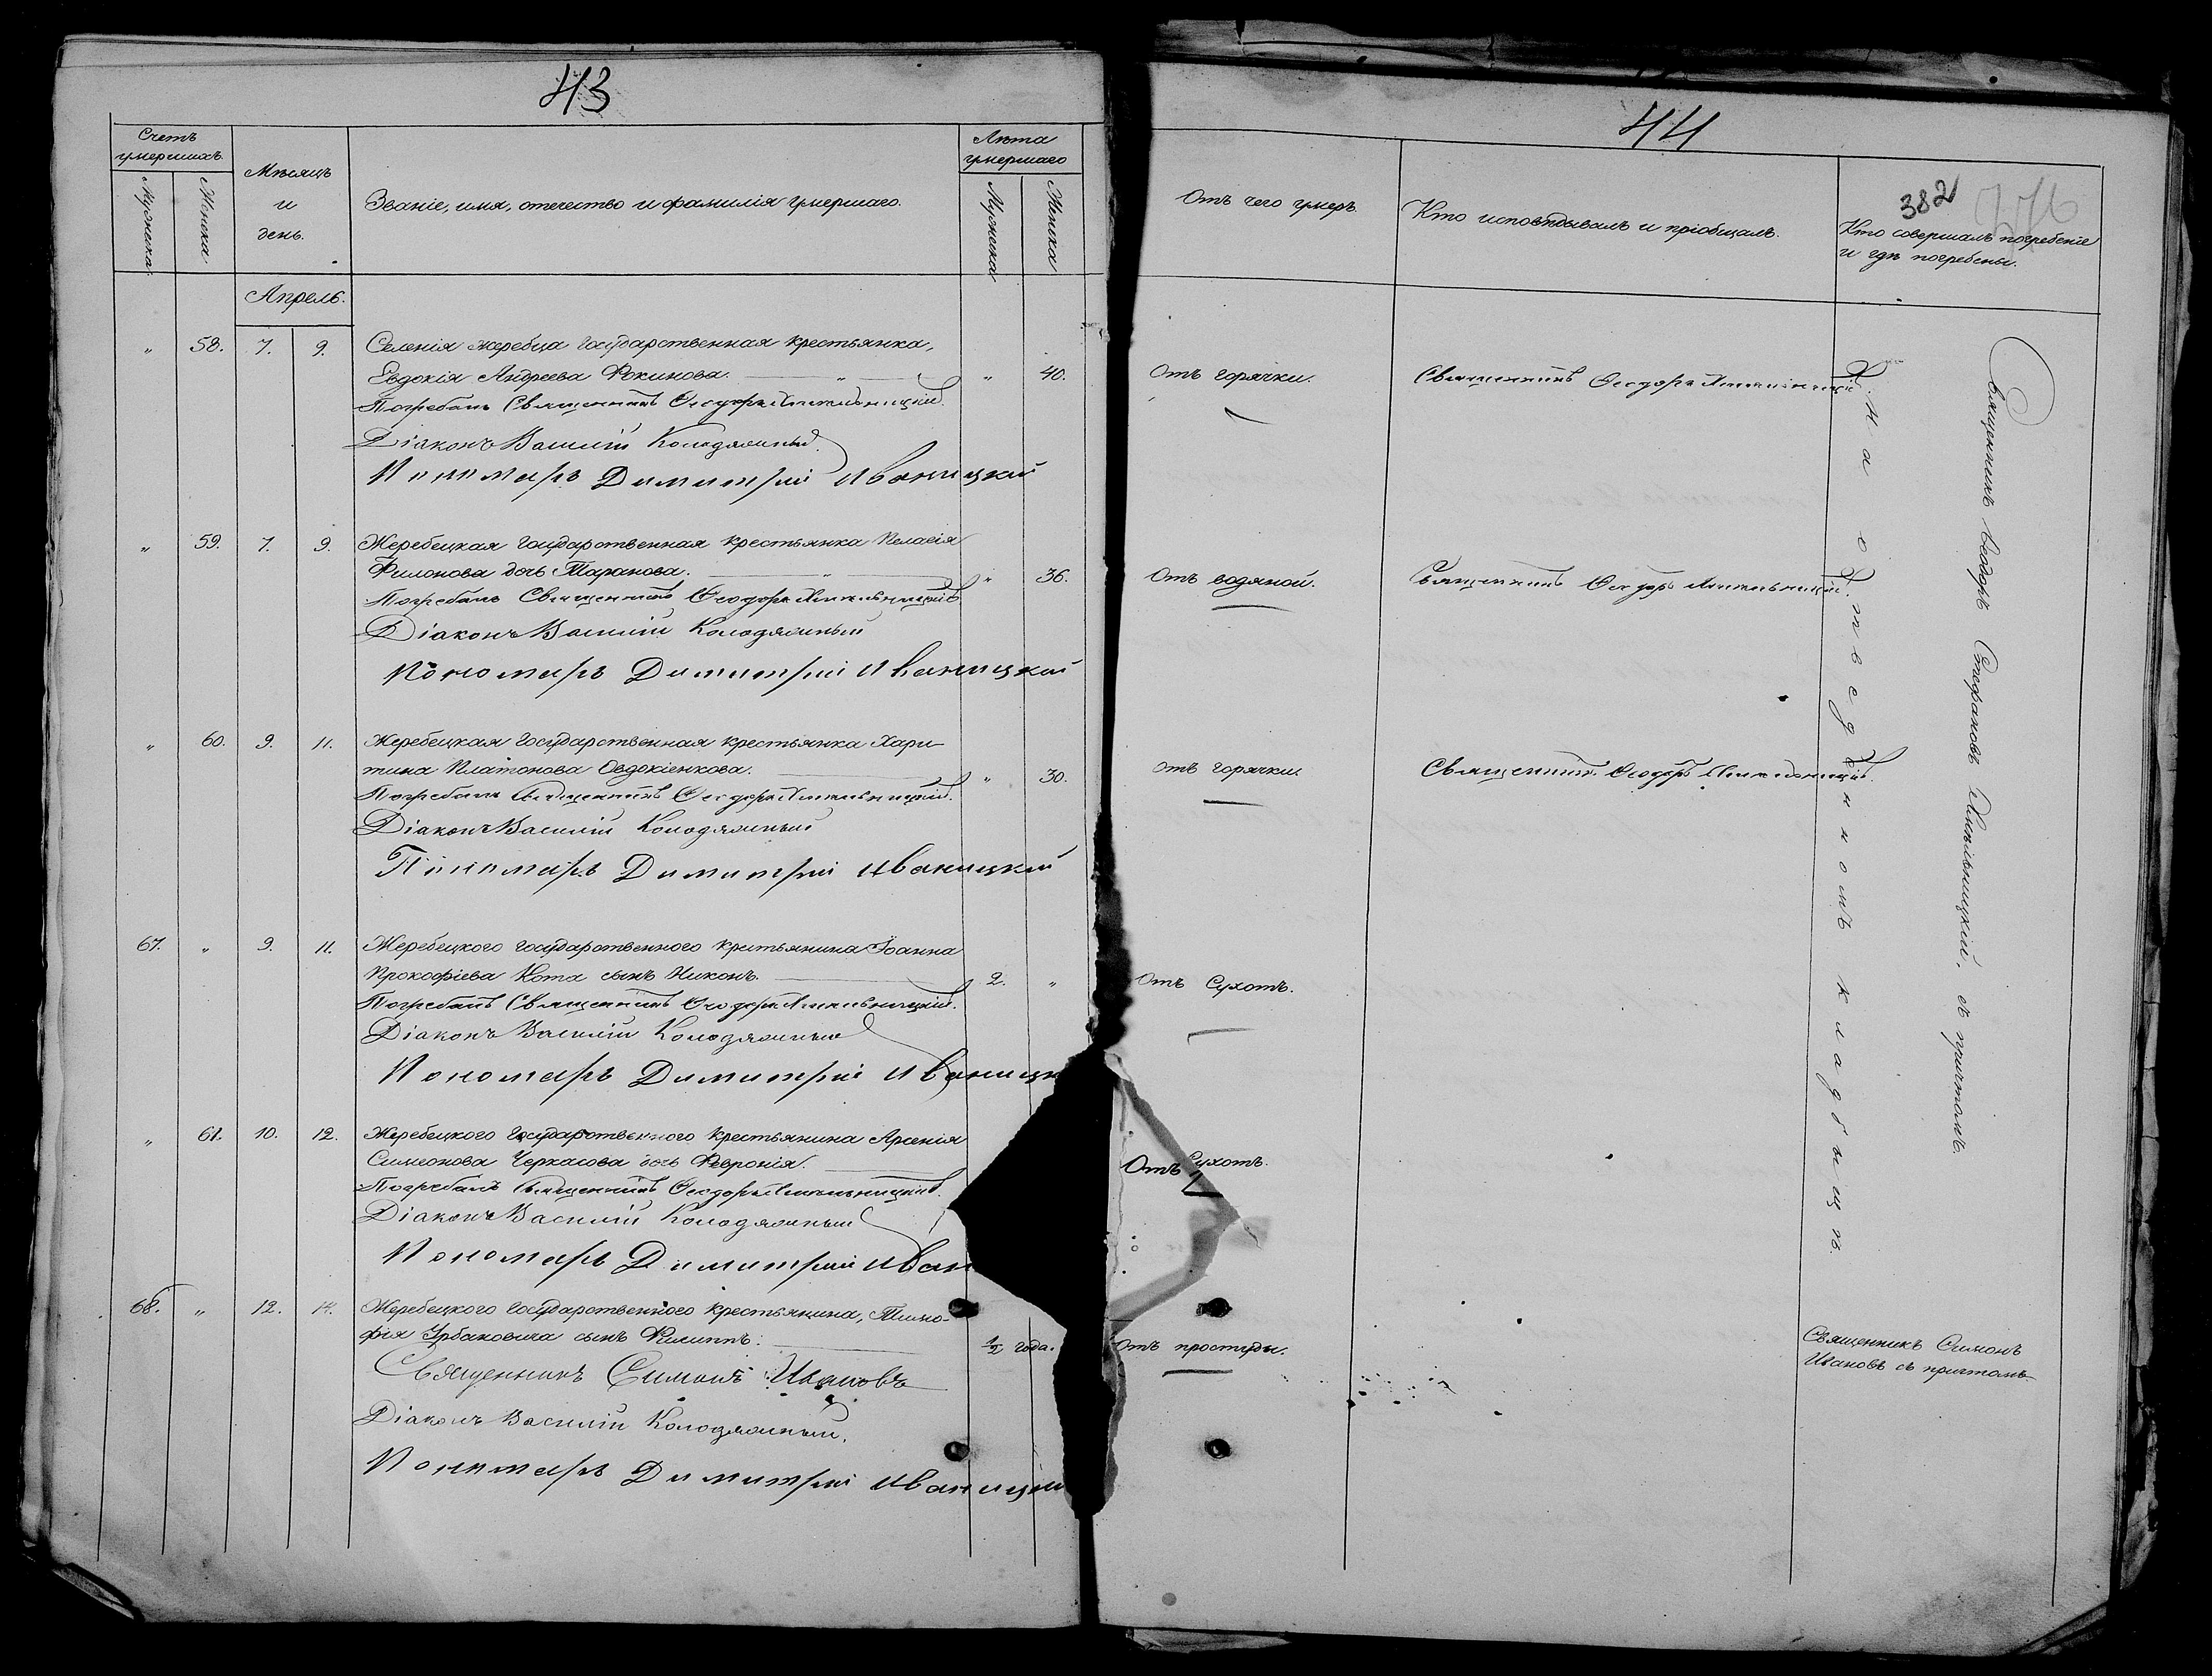 43
Счетъ умершихъ.
Мужеска.
Женска
Мѣсяцъ и день.
Званіе, имя, отечество и фамилія умершаго.
Лѣта умершаго
Мужеска
Женска
Апрель.
„ 58. 7. 9. Селенія жеребца государственная крестьянка,
Евдокія Андреева Фокинова. „ „ 40.
Погребалъ Священникъ Ѳеодоръ Хмельницкій.
Діаконъ Василій Колодяжный.
Пономарь Димитрій Иваницкій
„ 59. 7. 9. Жеребецкая государственная крестьянка Пелагія
Филонова дочь Таранова. „ „ 36.
Погребалъ Священникъ Ѳеодоръ Хмельницкій.
Діаконъ Василій Колодяжный
Пономарь Димитрій Иваницкій
„ 60. 9. 11. Жеребецкая государственная крестьянка Хари-
тина Платонова Овдокіенкова. „ 30.
Погребалъ Священникъ Ѳеодоръ Хмельницкій.
Діаконъ Василій Колодяжный
Пономарь Димитрій Иваницкій
67. „ 9. 11. Жеребецкого государственного крестьянина Іоанна
Прокофіева Кота сынъ Никонъ. 2. „
Погребалъ Священникъ Ѳеодоръ Хмельницкій.
Діаконъ Василій Колодяжный
Пономарь Димитрій Иваницк
„ 61. 10. 12. Жеребецкого государственного крестьянина Арсенія
Симеонова Черкасова дочь Февронія.
Погребалъ Священникъ Ѳеодоръ Хмельницкій.
Діаконъ Василій Колодяжный
Пономарь Димитрій Иван
68. „ 12. 14. Жеребецкого государственного крестьянина, Тимо-
фія Урбановича сынъ Филиппъ. 1/2 года.
Священникъ Симонъ Ивановъ
Діаконъ Василій Колодяжный.
Пономарь Димитрій Иваницкій
44
382
Отъ чего умеръ.
Кто исповѣдывалъ и пріобщалъ.
Кто совершалъ погребеніе
и гдѣ погребены.
Отъ горячки. Священникъ Ѳеодоръ Хмельницкій.
Отъ водяной. Священникъ Ѳеодоръ Хмельницкій.
Отъ горячки. Священникъ Ѳеодоръ Хмельницкій.
Отъ Сухотъ.
Отъ Сухотъ.
Отъ простуды.
На отведенномъ кладбыщѣ.
Священникъ Ѳеодоръ Стефановъ Хмѣльницкій, съ причтомъ.
Священникъ Симонъ
Ивановъ съ причтомъ.